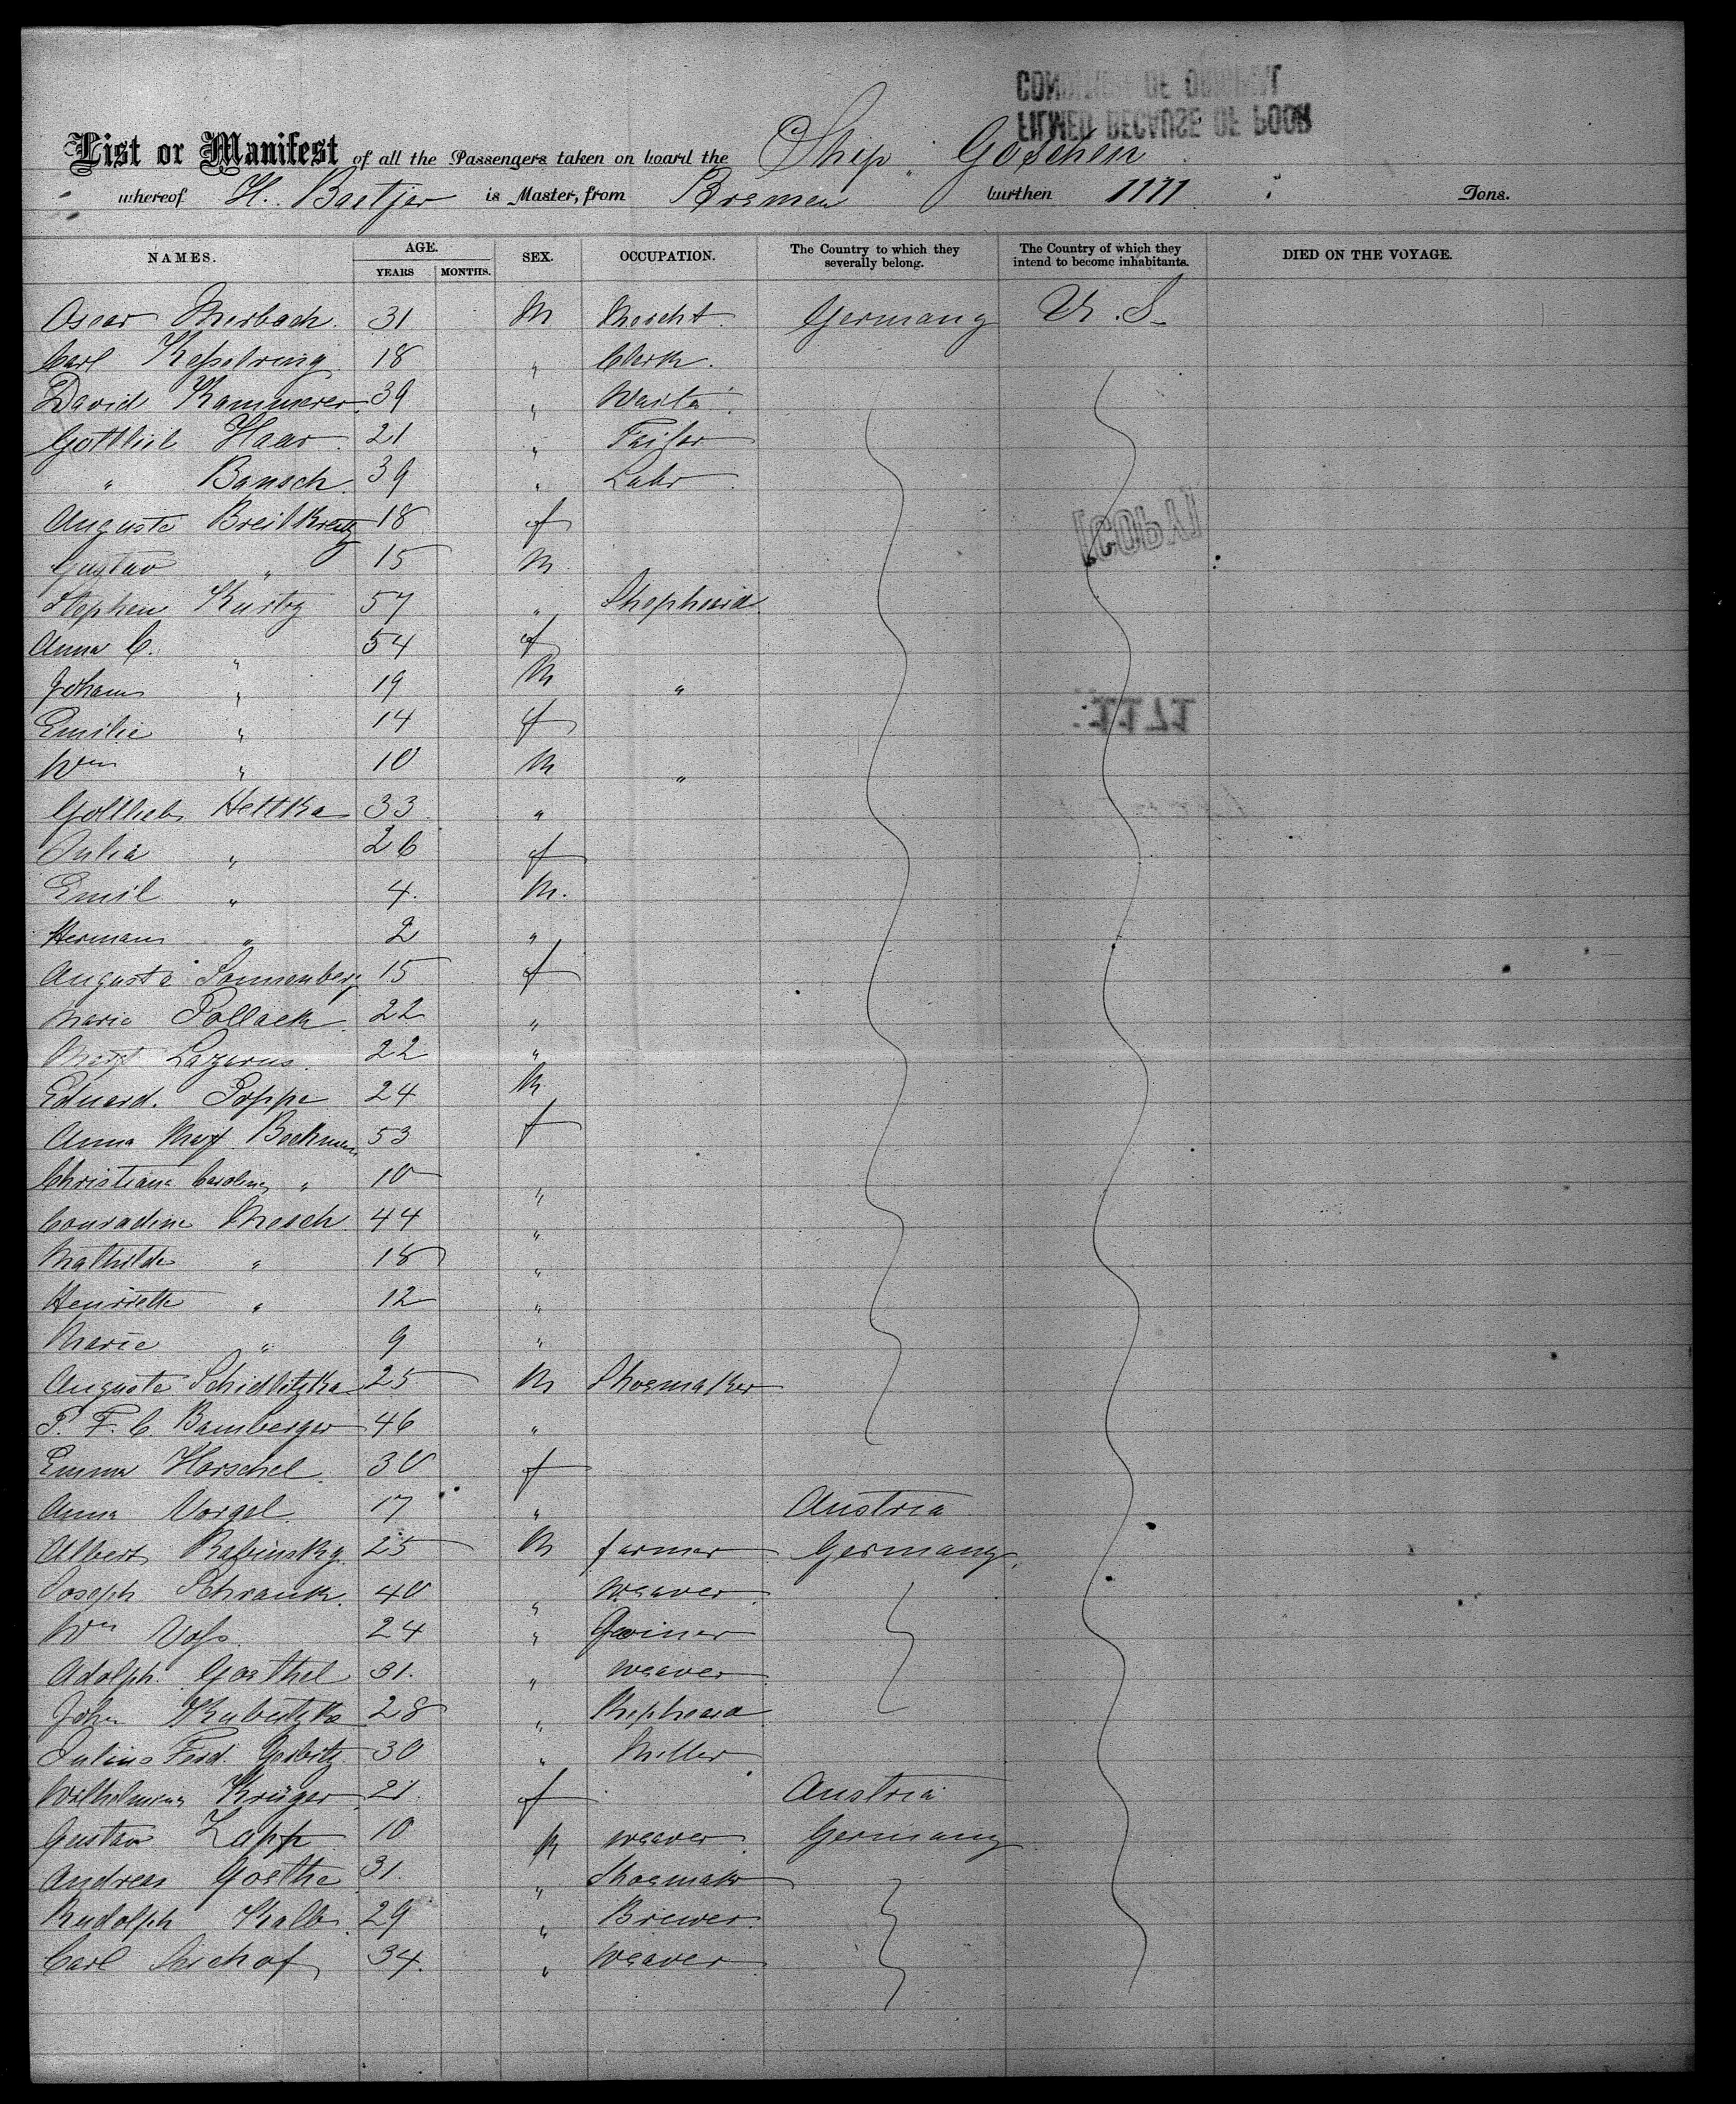 List or Manifest of all the Passengers taken on board the Ship Goschen
whereof H. Baetjer is Master, from Bremen burthen 1171 Tons.
NAMES. AGE. SEX. OCCUPATION. The Country to which they severally belong. The Country of which they intend to become inhabitants. DIED ON THE VOYAGE.
YEARS MONTHS.
Oscar 31 M Mercht. Germany U.S.
Carl Kesselring 18 " Clerk.
David Kammerer 39 "
Gottlieb Haar 21 " Tailor
" Bansch 39 " Labr
Auguste Breitkreutz 18 f
Gustav " 15 M
Stephen 57 " Shepherd
Anna C. " 54 f
Johann " 19 M "
Emilie " 14 f
Wm " 10 M "
Gottlieb Hettka 33 "
Julia " 26 f
Emil " 4. M.
Hermann " 2 "
Auguste Sonnenberg 15 f
Marie Pollack 22 "
Margt Lazarus 22 "
Eduard. Poppe 24 M
Anna Margt Beckmann 53 f
Christiane Caroline " 10 "
Conradine Mesch 44 "
Mathilde " 18 "
Henriette " 12 "
Marie " 9 "
Auguste Schidlitzka 25 M Shoemaker
P. F. C. Bamberger 46 "
Emma Horschel 30 f
Anna Vorgel 17 " Austria
Albert 25 M farmer Germany
Joseph Schrank 40 " weaver
Wm Voss 24 " Joiner
Adolph. Goethel 31. " weaver
John Kubitzka 28 " Shepherd
Julius Ferd. 30 " Miller
Wilhelmina Krüger 21. f Austria
Gustav Zapp 10 M weaver Germany
Andreas Goethe 31. " Shoemak
Rudolph Kalb 29 " Brewer
Carl 34. " weaver